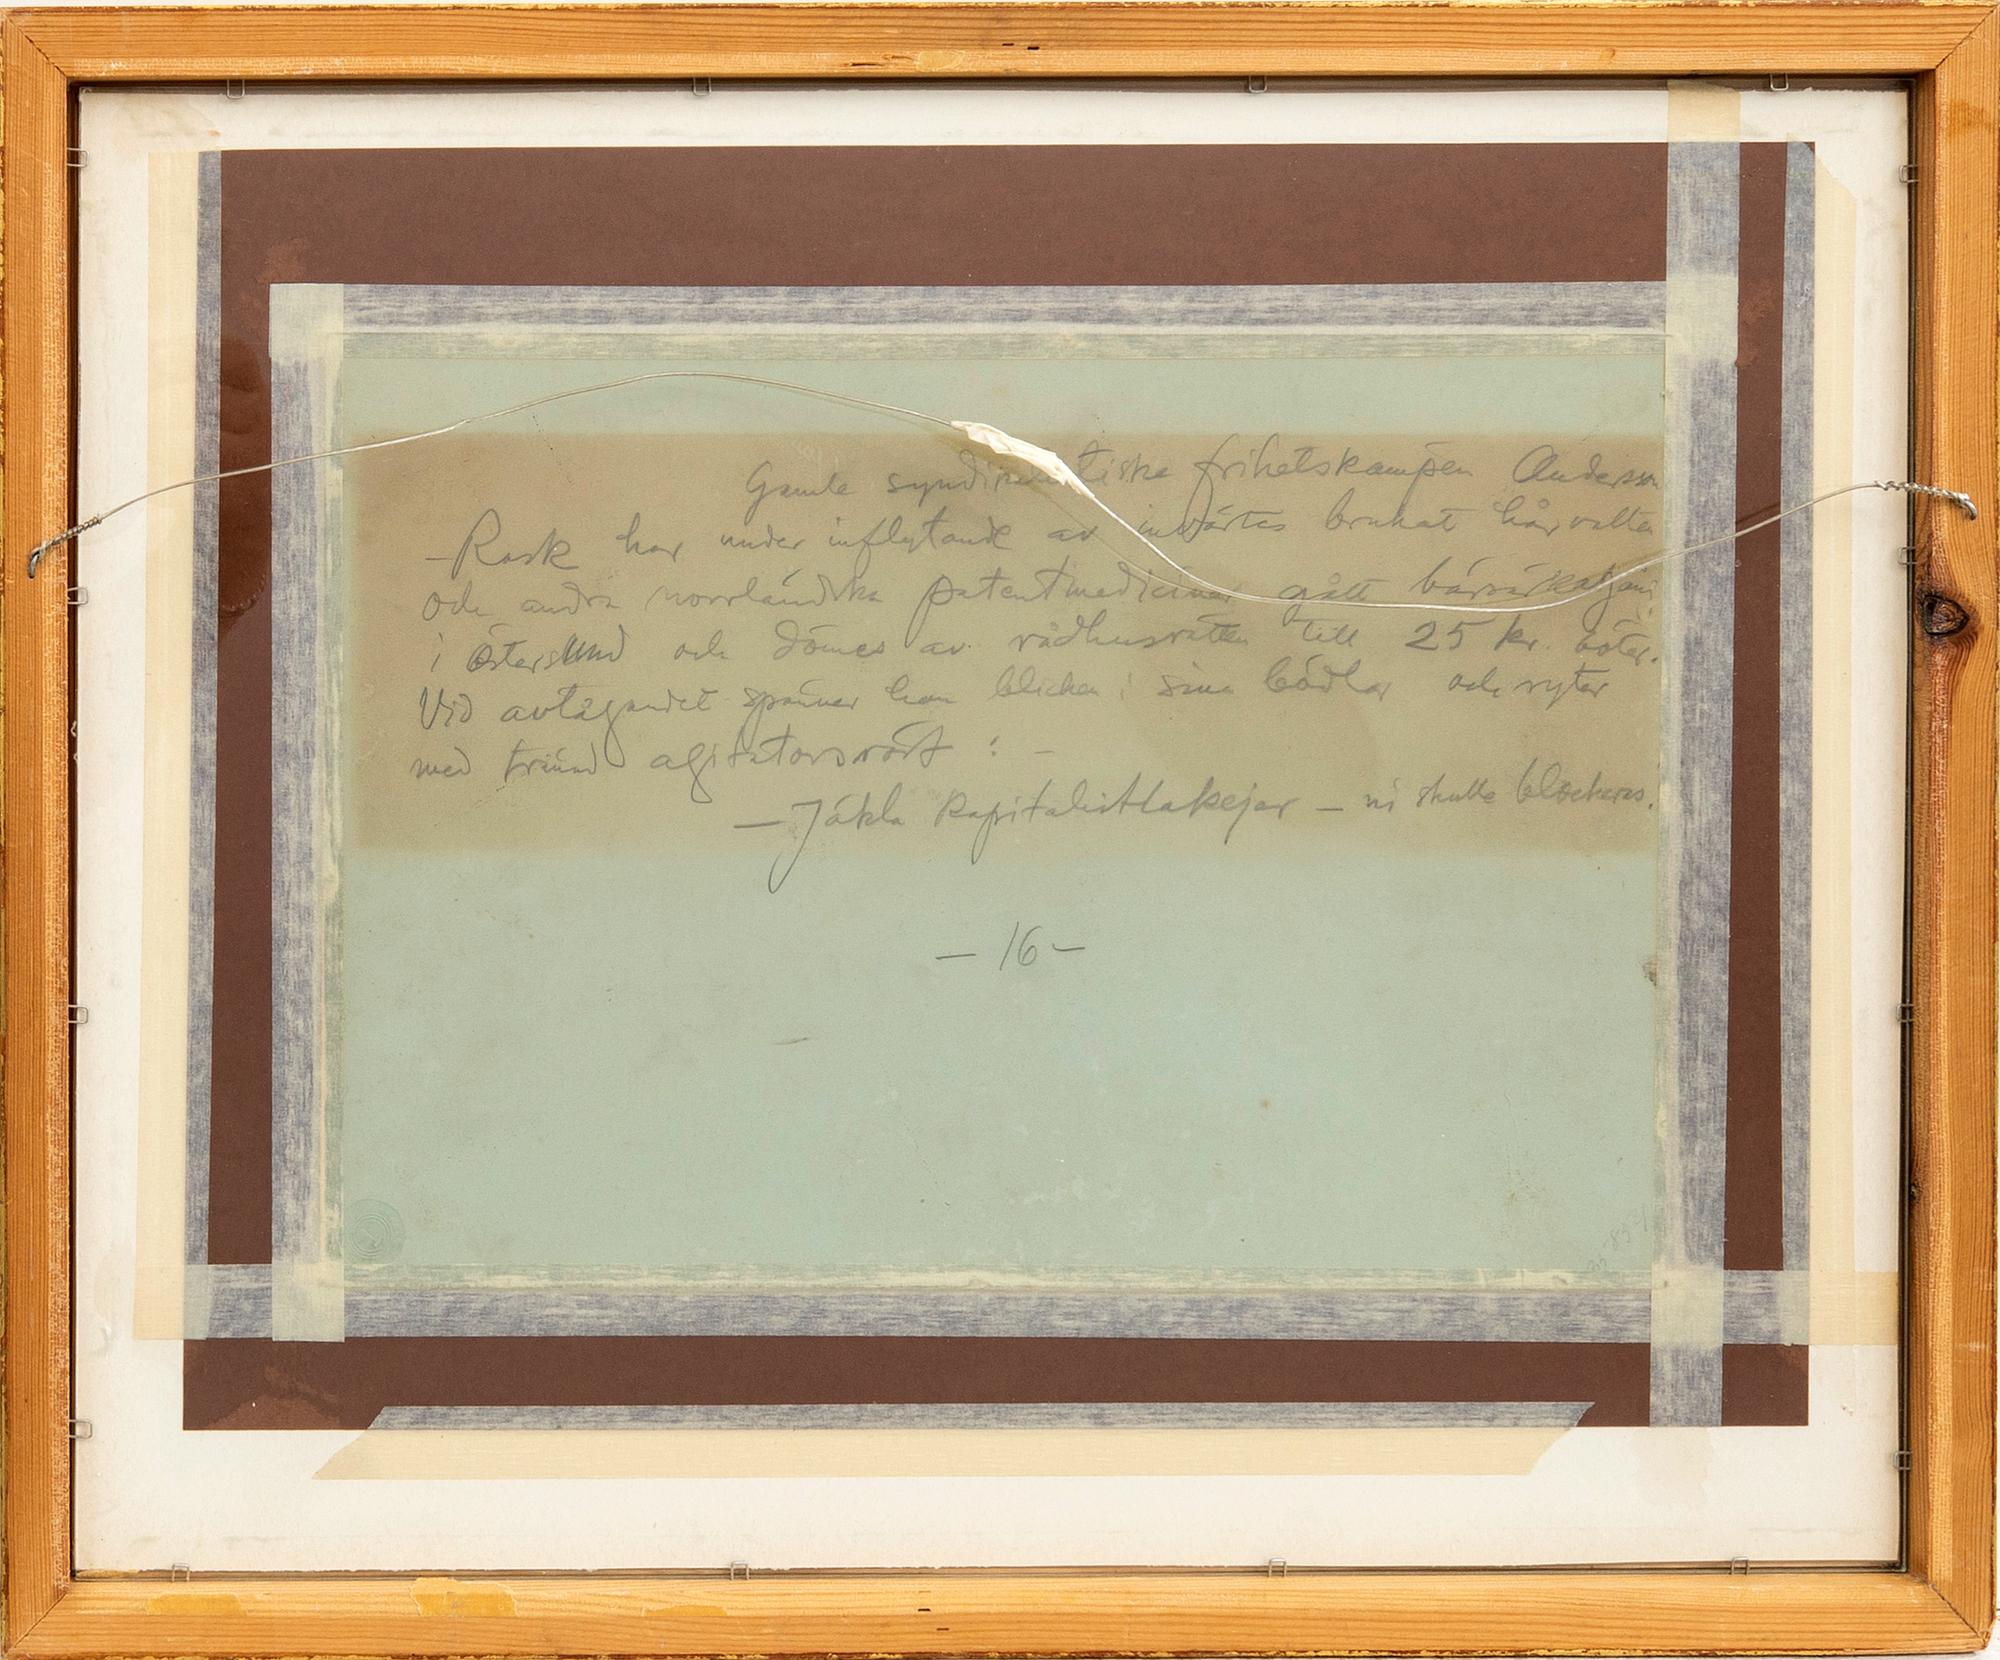 Gamle syndikalistiske frihetskampen Andersson
– Rask har under inflytande av invärtes brukat hårvatten
och andra norrländska patentmediciner gått bärsärkagång
i Östersund och dömes av rådhusrätten till 25 kr. böter.
Vid avtågandet spänner han blicken i sina bödlar och ryter
med tränad agitatorsröst : –
– Jäkla kapitalistlakejer – ni skulle blockeras.
– 16 –